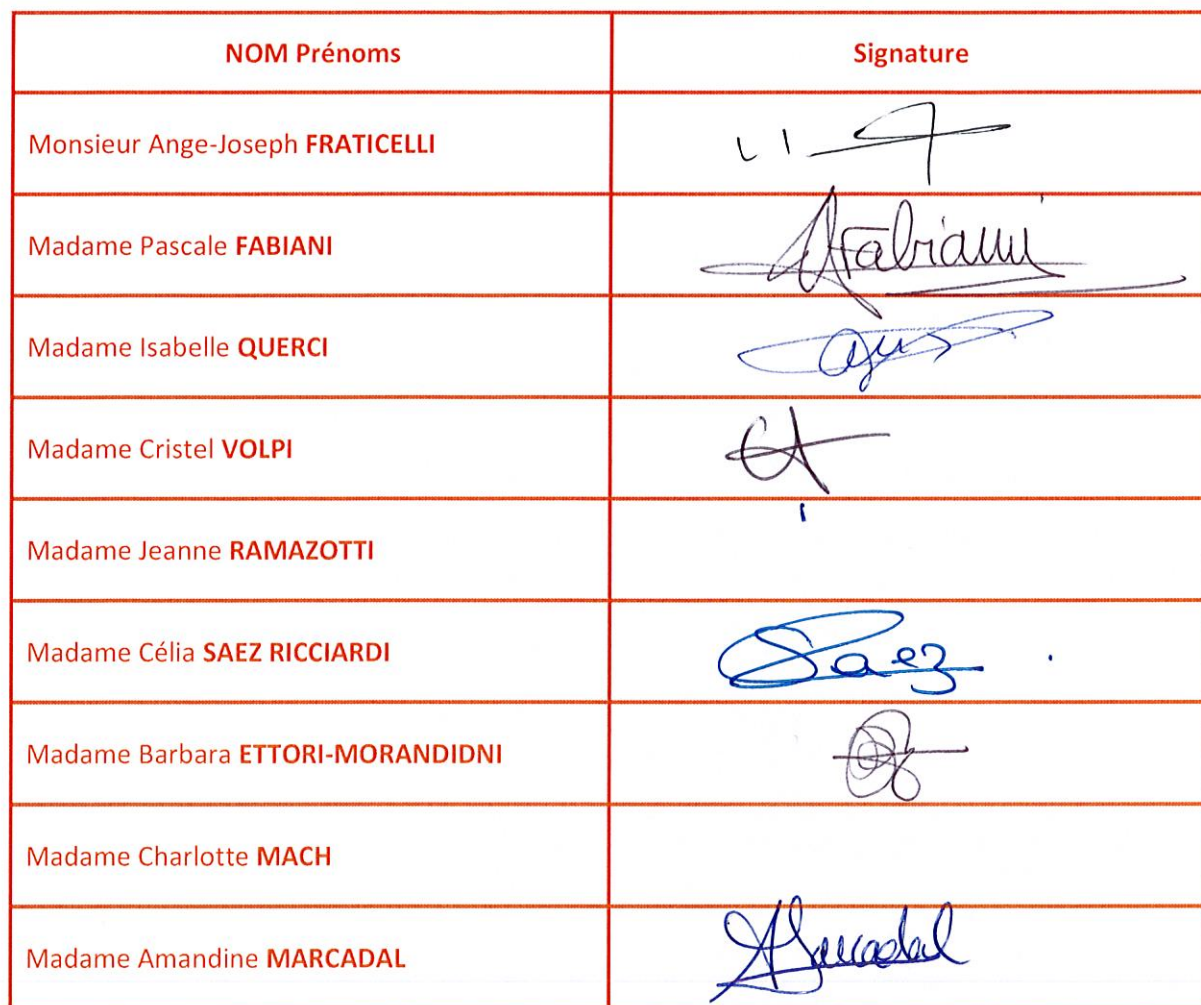 NOM Prénoms
Signature
Monsieur Ange-Joseph FRATICELLI
Madame Pascale FABIANI
Fabiani
Madame Isabelle QUERCI
Madame Cristel VOLPI
Madame Jeanne RAMAZOTTI
Madame Célia SAEZ RICCIARDI
Saez
Madame Barbara ETTORI-MORANDIDNI
Madame Charlotte MACH
Madame Amandine MARCADAL